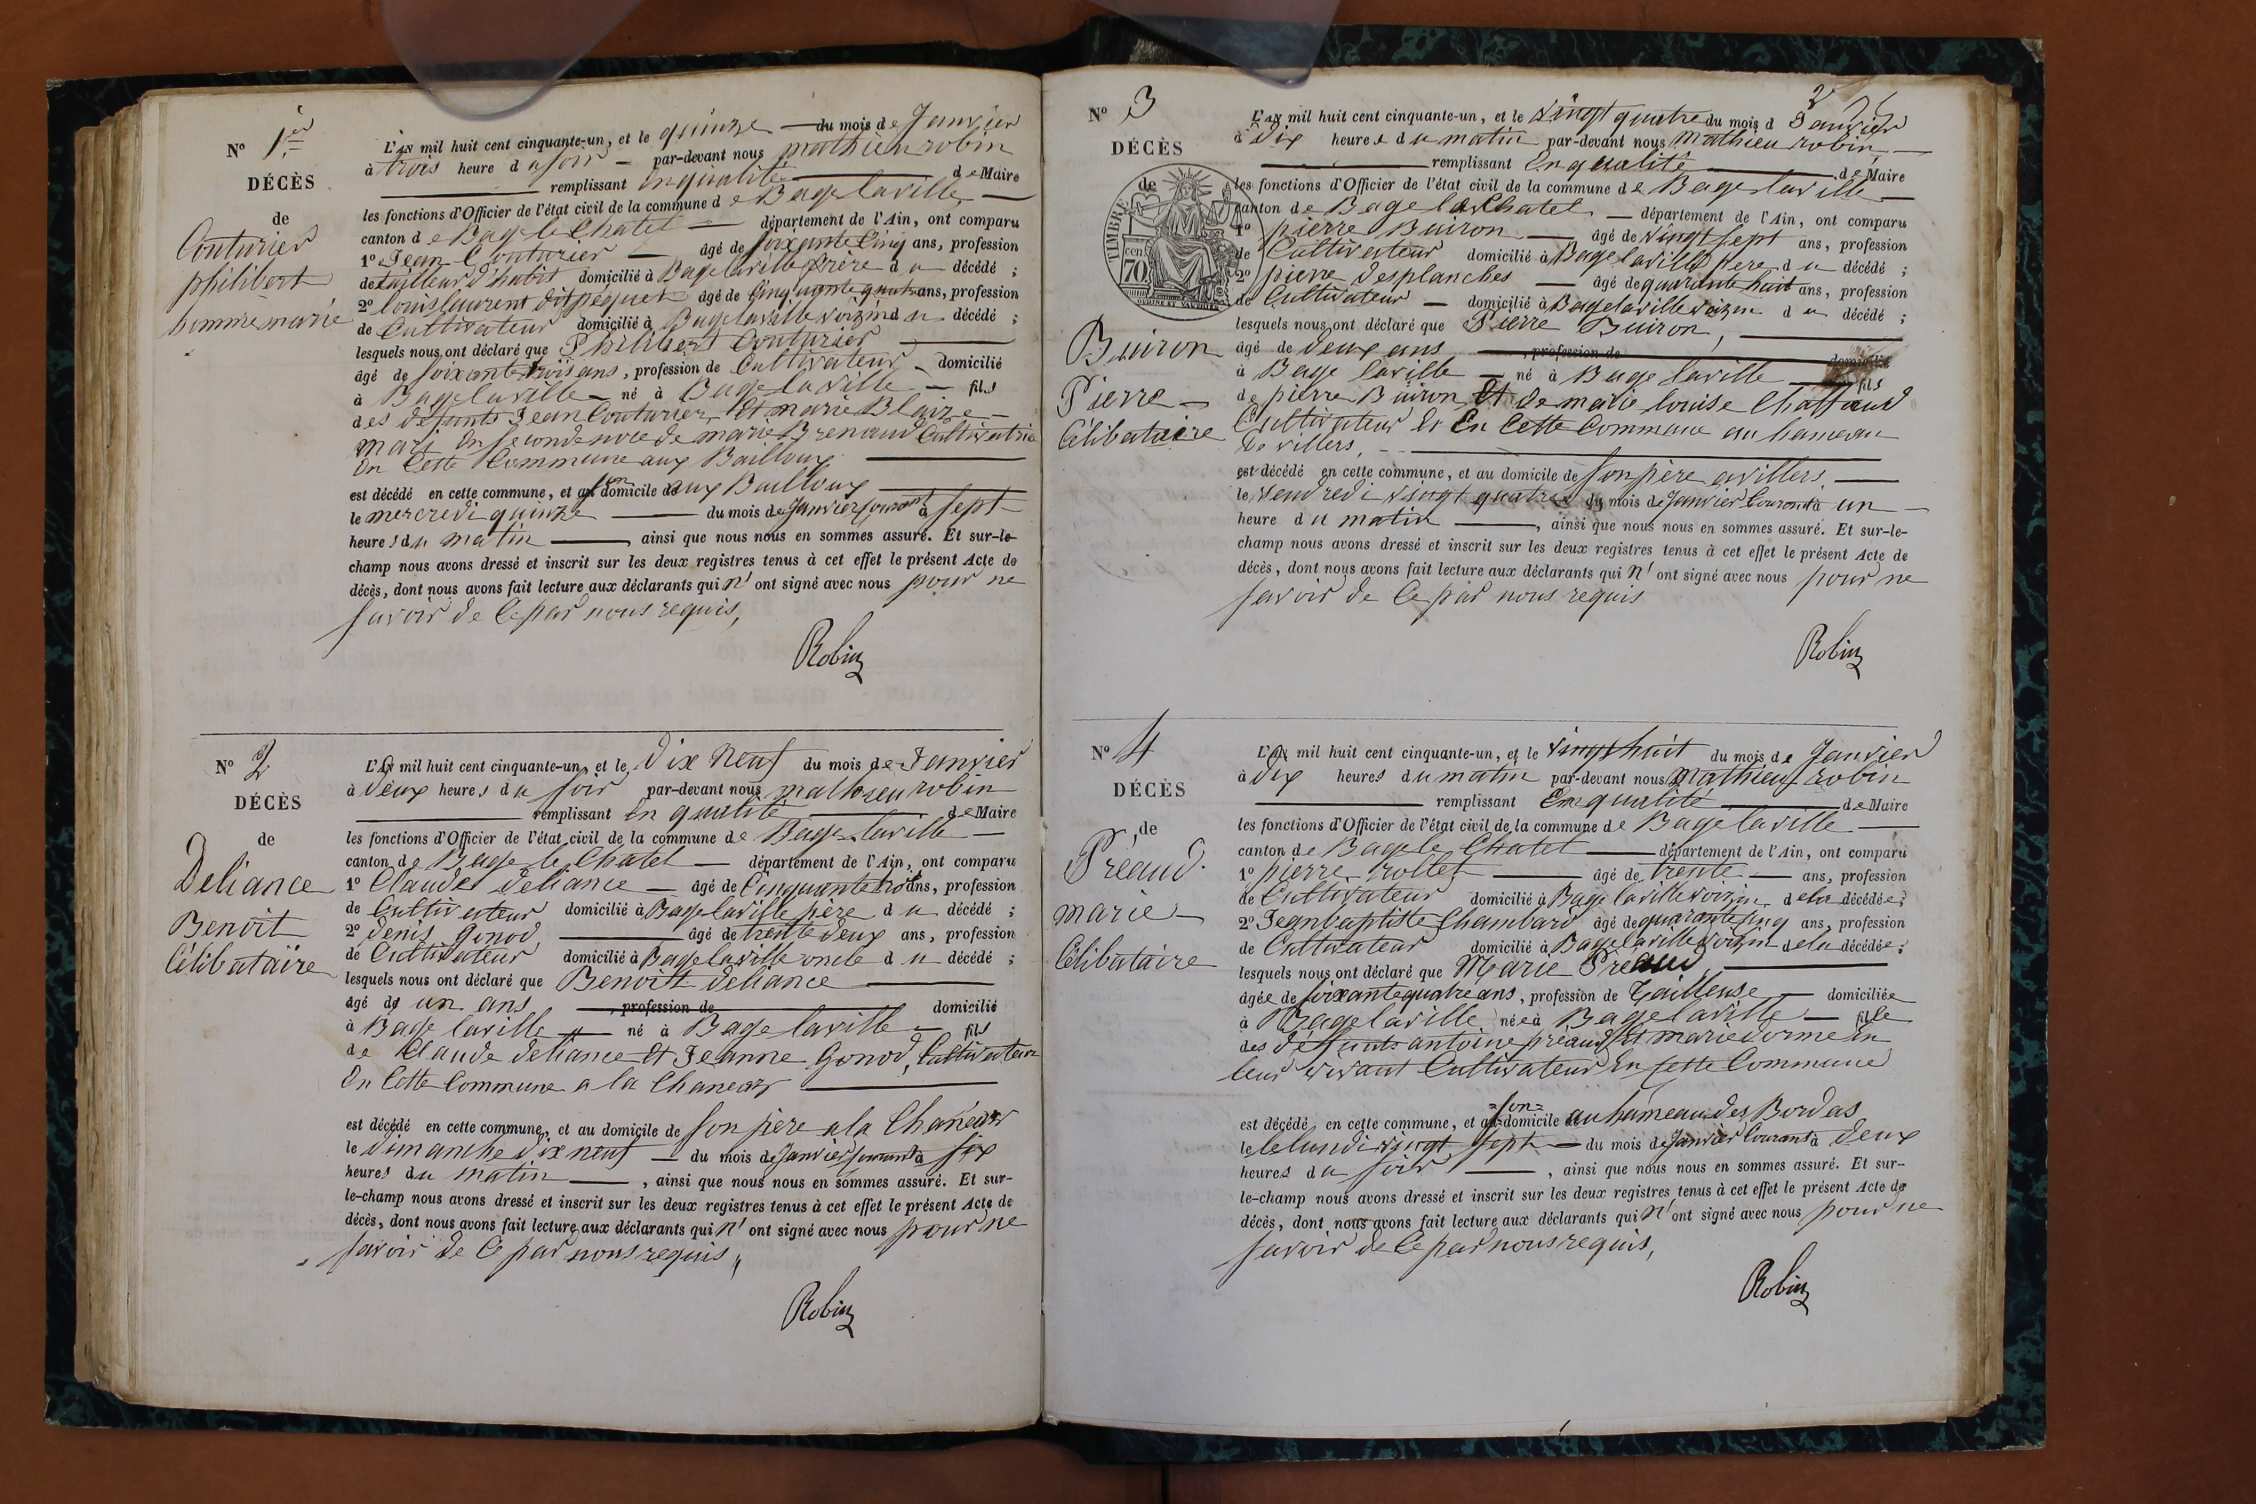 N° 1er
DÉCÈS
de
Couturier
philibert
homme marié
L'AN mil huit cent cinquante-un, et le quinze — du mois de Janvier
à trois heure du soir — par-devant nous mathieu robin
remplissant En qualité de Maire
les fonctions d'Officier de l'état civil de la commune de Bage laville —
canton de Bage le Chatel — département de l'Ain, ont comparu
1° Jean Couturier — âgé de soixante Cinq ans, profession
de tailleur d'habit domicilié à Bage laville frère du décédé ;
2° louis laurent dit pequet âgé de Cinquante quatre ans, profession
de Cultivateur domicilié à Bage laville voizin du décédé ;
lesquels nous ont déclaré que Philibert Couturier
âgé de soixante trois ans, profession de Cultivateur — domicilié
à Bage laville — né à Bage laville — fils
des défunts Jean Couturier Et marie Blaize —
mari En secondenoce de marie Brenaud Cultivatrice
En Cette Commune aux Bailloux
est décédé en cette commune, et au son domicile de aux Bailloux
le mercredi quinze — du mois de Janvier Courant à sept
heures du matin —, ainsi que nous nous en sommes assuré. Et sur-le-
champ nous avons dressé et inscrit sur les deux registres tenus à cet effet le présent Acte de
décès, dont nous avons fait lecture aux déclarants qui n' ont signé avec nous pour ne
savoir de Ce par nous requis,
Robin
N° 2
DÉCÈS
de
Deliance
Benoit
Célibataire
L'AN mil huit cent cinquante-un, et le dix neuf du mois de Janvier
à deux heures du soir par-devant nous mathieu robin
remplissant En qualité de Maire
les fonctions d'Officier de l'état civil de la commune de Bage laville —
canton de Bage le Chatel — département de l'Ain, ont comparu
1° Claude deliance — âgé de Cinquante trois ans, profession
de Cultivateur domicilié à Bage laville père du décédé ;
2° denis gonod âgé de trente deux ans, profession
de Cultivateur domicilié à Bage laville oncle du décédé ;
lesquels nous ont déclaré que Benoit deliance
âgé de un ans , profession de domicilié
à Bage laville — né à Bage laville — fils
de Claude deliance Et Jeanne Gonod, Cultivateur
En Cette Commune a la Chanear
est décédé en cette commune, et au domicile de son père a la Chanéar
le dimanche dix neuf — du mois de Janvier Courant à six
heures du matin —, ainsi que nous nous en sommes assuré. Et sur-
le-champ nous avons dressé et inscrit sur les deux registres tenus à cet effet le présent Acte de
décès, dont nous avons fait lecture aux déclarants qui n' ont signé avec nous pour ne
savoir de Ce par nous requis,
Robin
2
N° 3
DÉCÈS
de
TIMBRE
70 cen
Buiron
Pierre —
Célibataire
L'AN mil huit cent cinquante-un, et le vingt quatre du mois d Janvier
à dix heures du matin par-devant nous mathieu robin, —
remplissant En qualité de Maire
les fonctions d'Officier de l'état civil de la commune de Bage laville —
canton de Bage le Chatel — département de l'Ain, ont comparu
1° pierre Buiron — âgé de vingt sept ans, profession
de Cultivateur domicilié à Bage laville père du décédé ;
2° pierre desplanches — âgé de quarante huit ans, profession
de Cultivateur — domicilié à Bage laville voizin du décédé ;
lesquels nous ont déclaré que Pierre Buiron,
âgé de deux ans , profession de domicilié
à Bage laville — né à Bage laville — fils
de pierre Buiron Et de marie louise Chaffaud
Cultivateur Es En Cette Commune au hameau
de villers,
est décédé en cette commune, et au domicile de son père a villers, —
le vendredi vingt quatre du mois de Janvier Courant à un —
heure du matin —, ainsi que nous nous en sommes assuré. Et sur-le-
champ nous avons dressé et inscrit sur les deux registres tenus à cet effet le présent Acte de
décès, dont nous avons fait lecture aux déclarants qui n' ont signé avec nous pour ne
savoir de Ce par nous requis
Robin
N° 4
DÉCÈS
de
Préaud
marie —
Célibataire
L'AN mil huit cent cinquante-un, et le vingt huit du mois de Janvier
à dix heures du matin par-devant nous Mathieu robin
remplissant En qualité de Maire
les fonctions d'Officier de l'état civil de la commune de Bage laville —
canton de Bage le Chatel — département de l'Ain, ont comparu
1° pierre rollet — âgé de trente — ans, profession
de Cultivateur domicilié à Bage laville voizin de la décédée ;
2° Jean baptiste Chambard âgé de quarante cinq ans, profession
de Cultivateur domicilié à Bage laville voizin de la décédée ;
lesquels nous ont déclaré que Marie Préaud
âgée de soixante quatre ans, profession de tailleuse — domiciliée
à Bage laville née à Bage laville — fille
des défunts antoine préaud Et marie dorme En
leur vivant Cultivateur En Cette Commune
est décédé en cette commune, et au =son= domicile de au hameau des Bordas
le le lundi vingt sept — du mois de Janvier Courant à deux
heures du soir —, ainsi que nous nous en sommes assuré. Et sur-
le-champ nous avons dressé et inscrit sur les deux registres tenus à cet effet le présent Acte de
décès, dont nous avons fait lecture aux déclarants qui n' ont signé avec nous pour ne
savoir de Ce par nous requis,
Robin